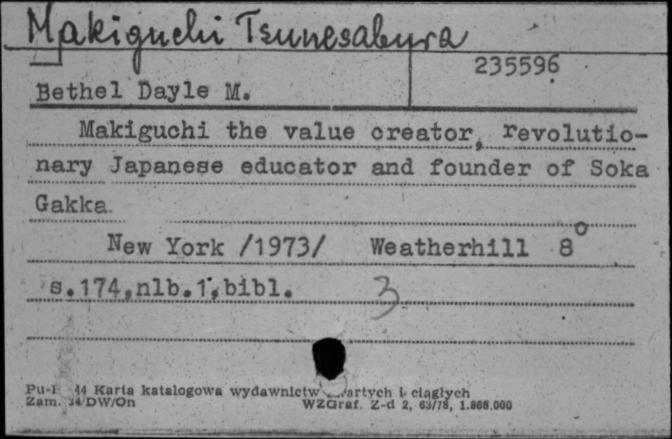 Makiguchi Tsunesabura
235596
Bethel Dayle M.
Makiguchi the value creator, revolutio-
nary Japanese educator and founder of Soka
Gakka
New York /1973/ Weatherhill 8°
s.174,nlb.1,bibl. 3
44 Karta katalogowa wydawnictw i ciągłych
Zam. 34/DW/On WZGraf. Z-d 2, 63/78, 1.868.000